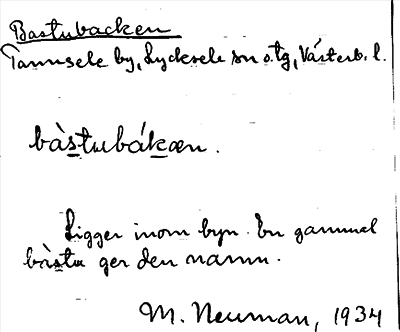 Bastubacken
Tannsele by, Lycksele sn o. tg, Västerb. l.
bàstubákæn.
Ligger inom byn. En gammal
bàstu ger den namn.
M. Neuman, 1934